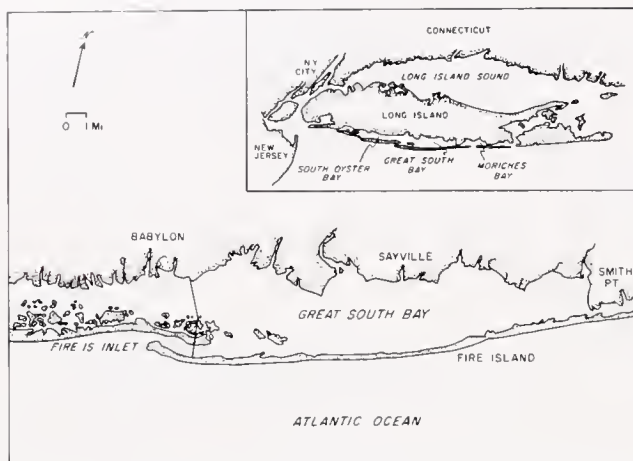 N
0 1 MI
CONNECTICUT
NY
CITY
LONG ISLAND SOUND
LONG ISLAND
NEW
JERSEY
SOUTH OYSTER
BAY
GREAT SOUTH
BAY
MORICHES
BAY
BABYLON
SAYVILLE
SMITH
PT
GREAT SOUTH BAY
FIRE IS INLET
FIRE ISLAND
ATLANTIC OCEAN